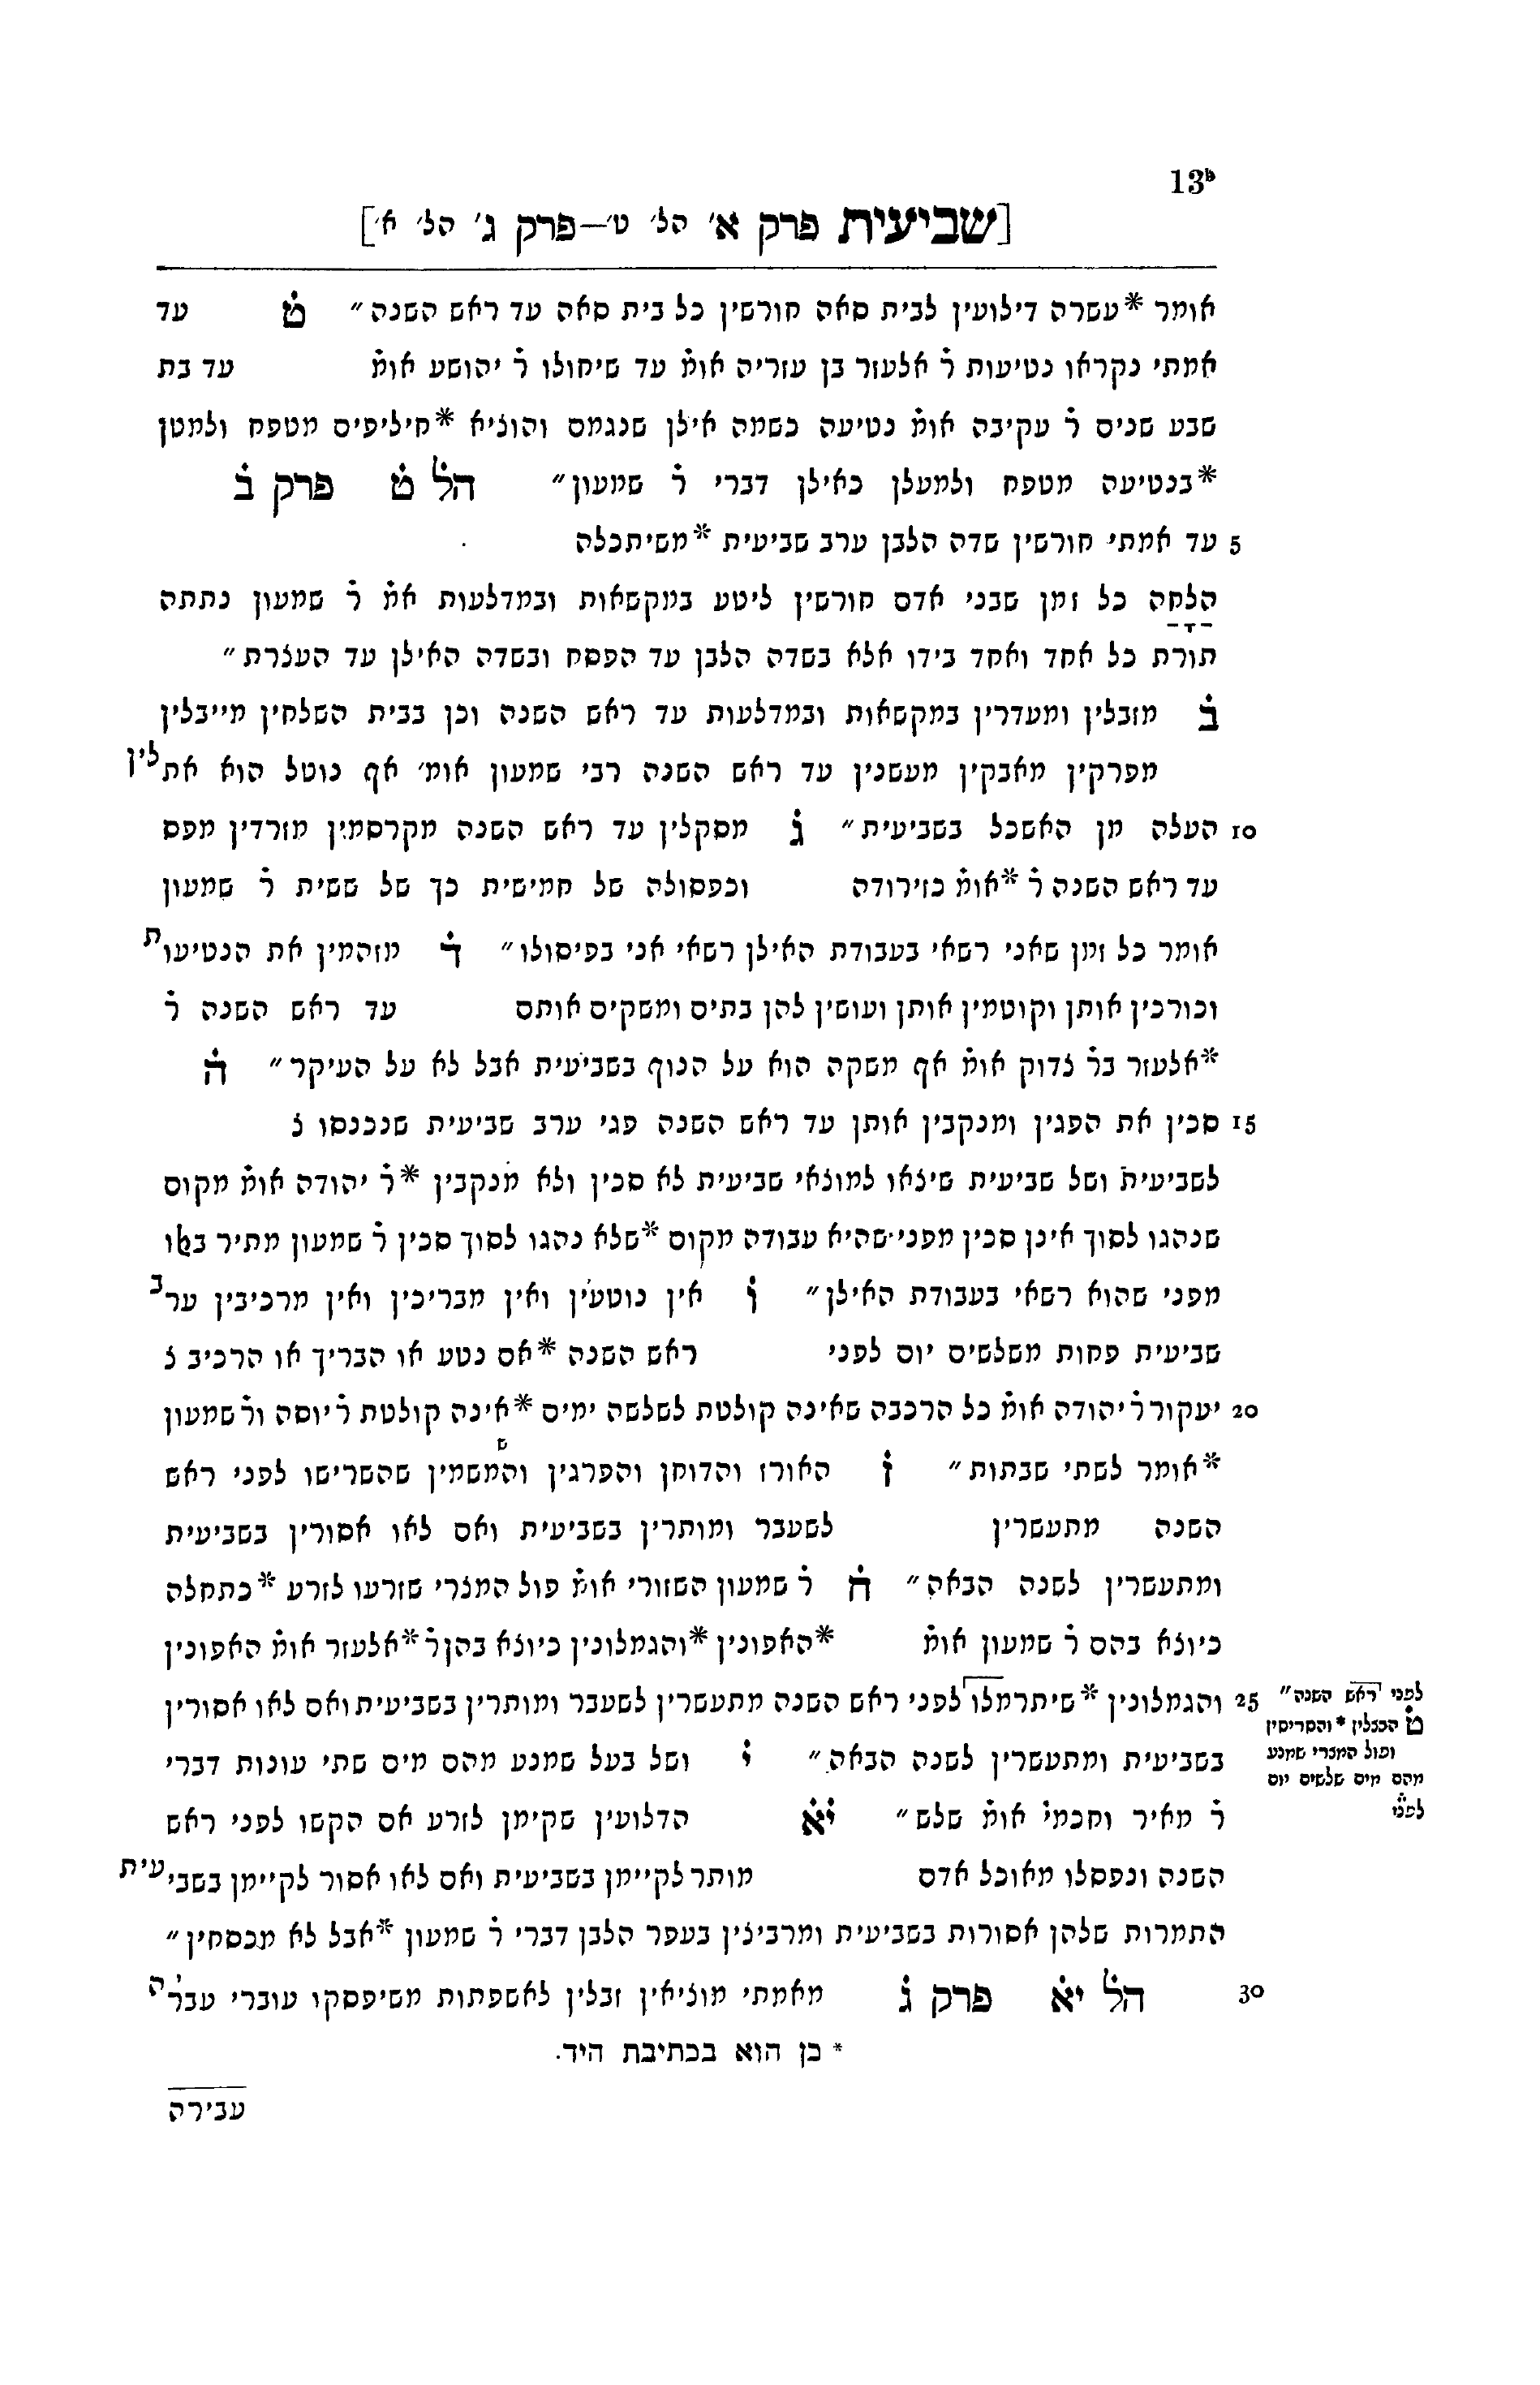 13ᵇ
[שביעית פרק א׳ הל׳ ט׳—פרק ג׳ הל׳ א׳]
אומר *עשרה דילועין לבית סאה חורשין כל בית סאה עד ראש השנה״ ט̇ עד
אמתי נקראו נטיעות ר̇ אלעזר בן עזריה אומ̇ עד שיחולו ר̇ יהושע אומ̇ עד בת
שבע שנים ר̇ עקיבה אומ̇ נטיעה כשמה אילן שנגמם והוציא *חיליפים מטפח ולמטן
*בנטיעה מטפח ולמעלן כאילן דברי ר̇ שמעון״ הל̇ ט̇ פרק ב̇
5 עד אמתי חורשין שדה הלבן ערב שביעית *משיתכלה
הלחה כל זמן שבני אדם חורשין ליטע במקשאות ובמדלעות אמ̇ ר̇ שמעון נתתה
תורת כל אחד ואחד בידו אלא בשדה הלבן עד הפסח ובשדה האילן עד העצרת״
ב̇ מזבלין ומעדרין במקשאות ובמדלעות עד ראש השנה וכן בבית השלחין מייבלין
מפרקין מאבקין מעשנין עד ראש השנה רבי שמעון אומ׳ אף נוטל הוא את לין
10 העלה מן האשכל בשביעית״ ג̇ מסקלין עד ראש השנה מקרסמין מזרדין מפס
עד ראש השנה ר̇ *אומ̇ כזירודה וכפסולה של חמישית כך של ששית ר̇ שמעון
אומר כל זמן שאני רשאי בעבודת האילן רשאי אני בפיסולו״ ד̇ מזהמין את הנטיעות
וכורכין אותן וקוטמין אותן ועושין להן בתים ומשקים אותם עד ראש השנה ר̇
*אלעזר בר̇ צדוק אומ̇ אף משקה הוא על הנוף בשביעית אבל לא על העיקר״ ה̇
15 סכין את הפגין ומנקבין אותן עד ראש השנה פגי ערב שביעית שנכנסו צ
לשביעית ושל שביעית שיצאו למוצאי שביעית לא סכין ולא מנקבין *ר̇ יהודה אומ̇ מקום
שנהגו לסוך אינן סכין מפני שהיא עבודה מקום *שלא נהגו לסוך סכין ר̇ שמעון מתיר באלו
מפני שהוא רשאי בעבודת האילן״ ו̇ אין נוטעין ואין מבריכין ואין מרכיבין ערב
שביעית פחות משלשים יום לפני ראש השנה *אם נטע או הבריך או הרכיב צ
20 יעקור ר̇ יהודה אומ̇ כל הרכבה שאינה קולטת לשלשה ימים *אינה קולטת ר̇ יוסה ור̇ שמעון
*אומר לשתי שבתות״ ז̇ האורז והדוחן והפרגין והמשמין שהשרישו לפני ראש
ש
השנה מתעשרין לשעבר ומותרין בשביעית ואם לאו אסורין בשביעית
ומתעשרין לשנה הבאה״ ח̇ ר̇ שמעון השזורי אומ̇ פול המצרי שזרעו לזרע *כתחלה
כיוצא בהם ר̇ שמעון אומ̇ *האפונין *והגמלונין כיוצא בהן ר̇ *אלעזר אומ̇ האפונין
25 והגמלונין *שיתרמלו לפני ראש השנה מתעשרין לשעבר ומותרין בשביעית ואם לאו אסורין
לפני ראש השנה״
ט̇ הבצלין *והסריסין
ופול המצרי שמנע
מהם מים שלשים יום
לפני
בשביעית ומתעשרין לשנה הבאה״ י̇ ושל בעל שמנע מהם מים שתי עונות דברי
ר̇ מאיר וחכמי̇ אומ̇ שלש״ יא̇ הדלועין שקימן לזרע אם הקשו לפני ראש
השנה ונפסלו מאוכל אדם מותר לקיימן בשביעית ואם לאו אסור לקיימן בשביעית
התמרות שלהן אסורות בשביעית ומרביצין בעפר הלבן דברי ר̇ שמעון *אבל לא מכסחין״
30 הל̇ יא̇ פרק ג̇ מאמתי מוציאין זבלין לאשפתות משיפסקו עוברי עברה
* כן הוא בכתיבת היד.
עבירה